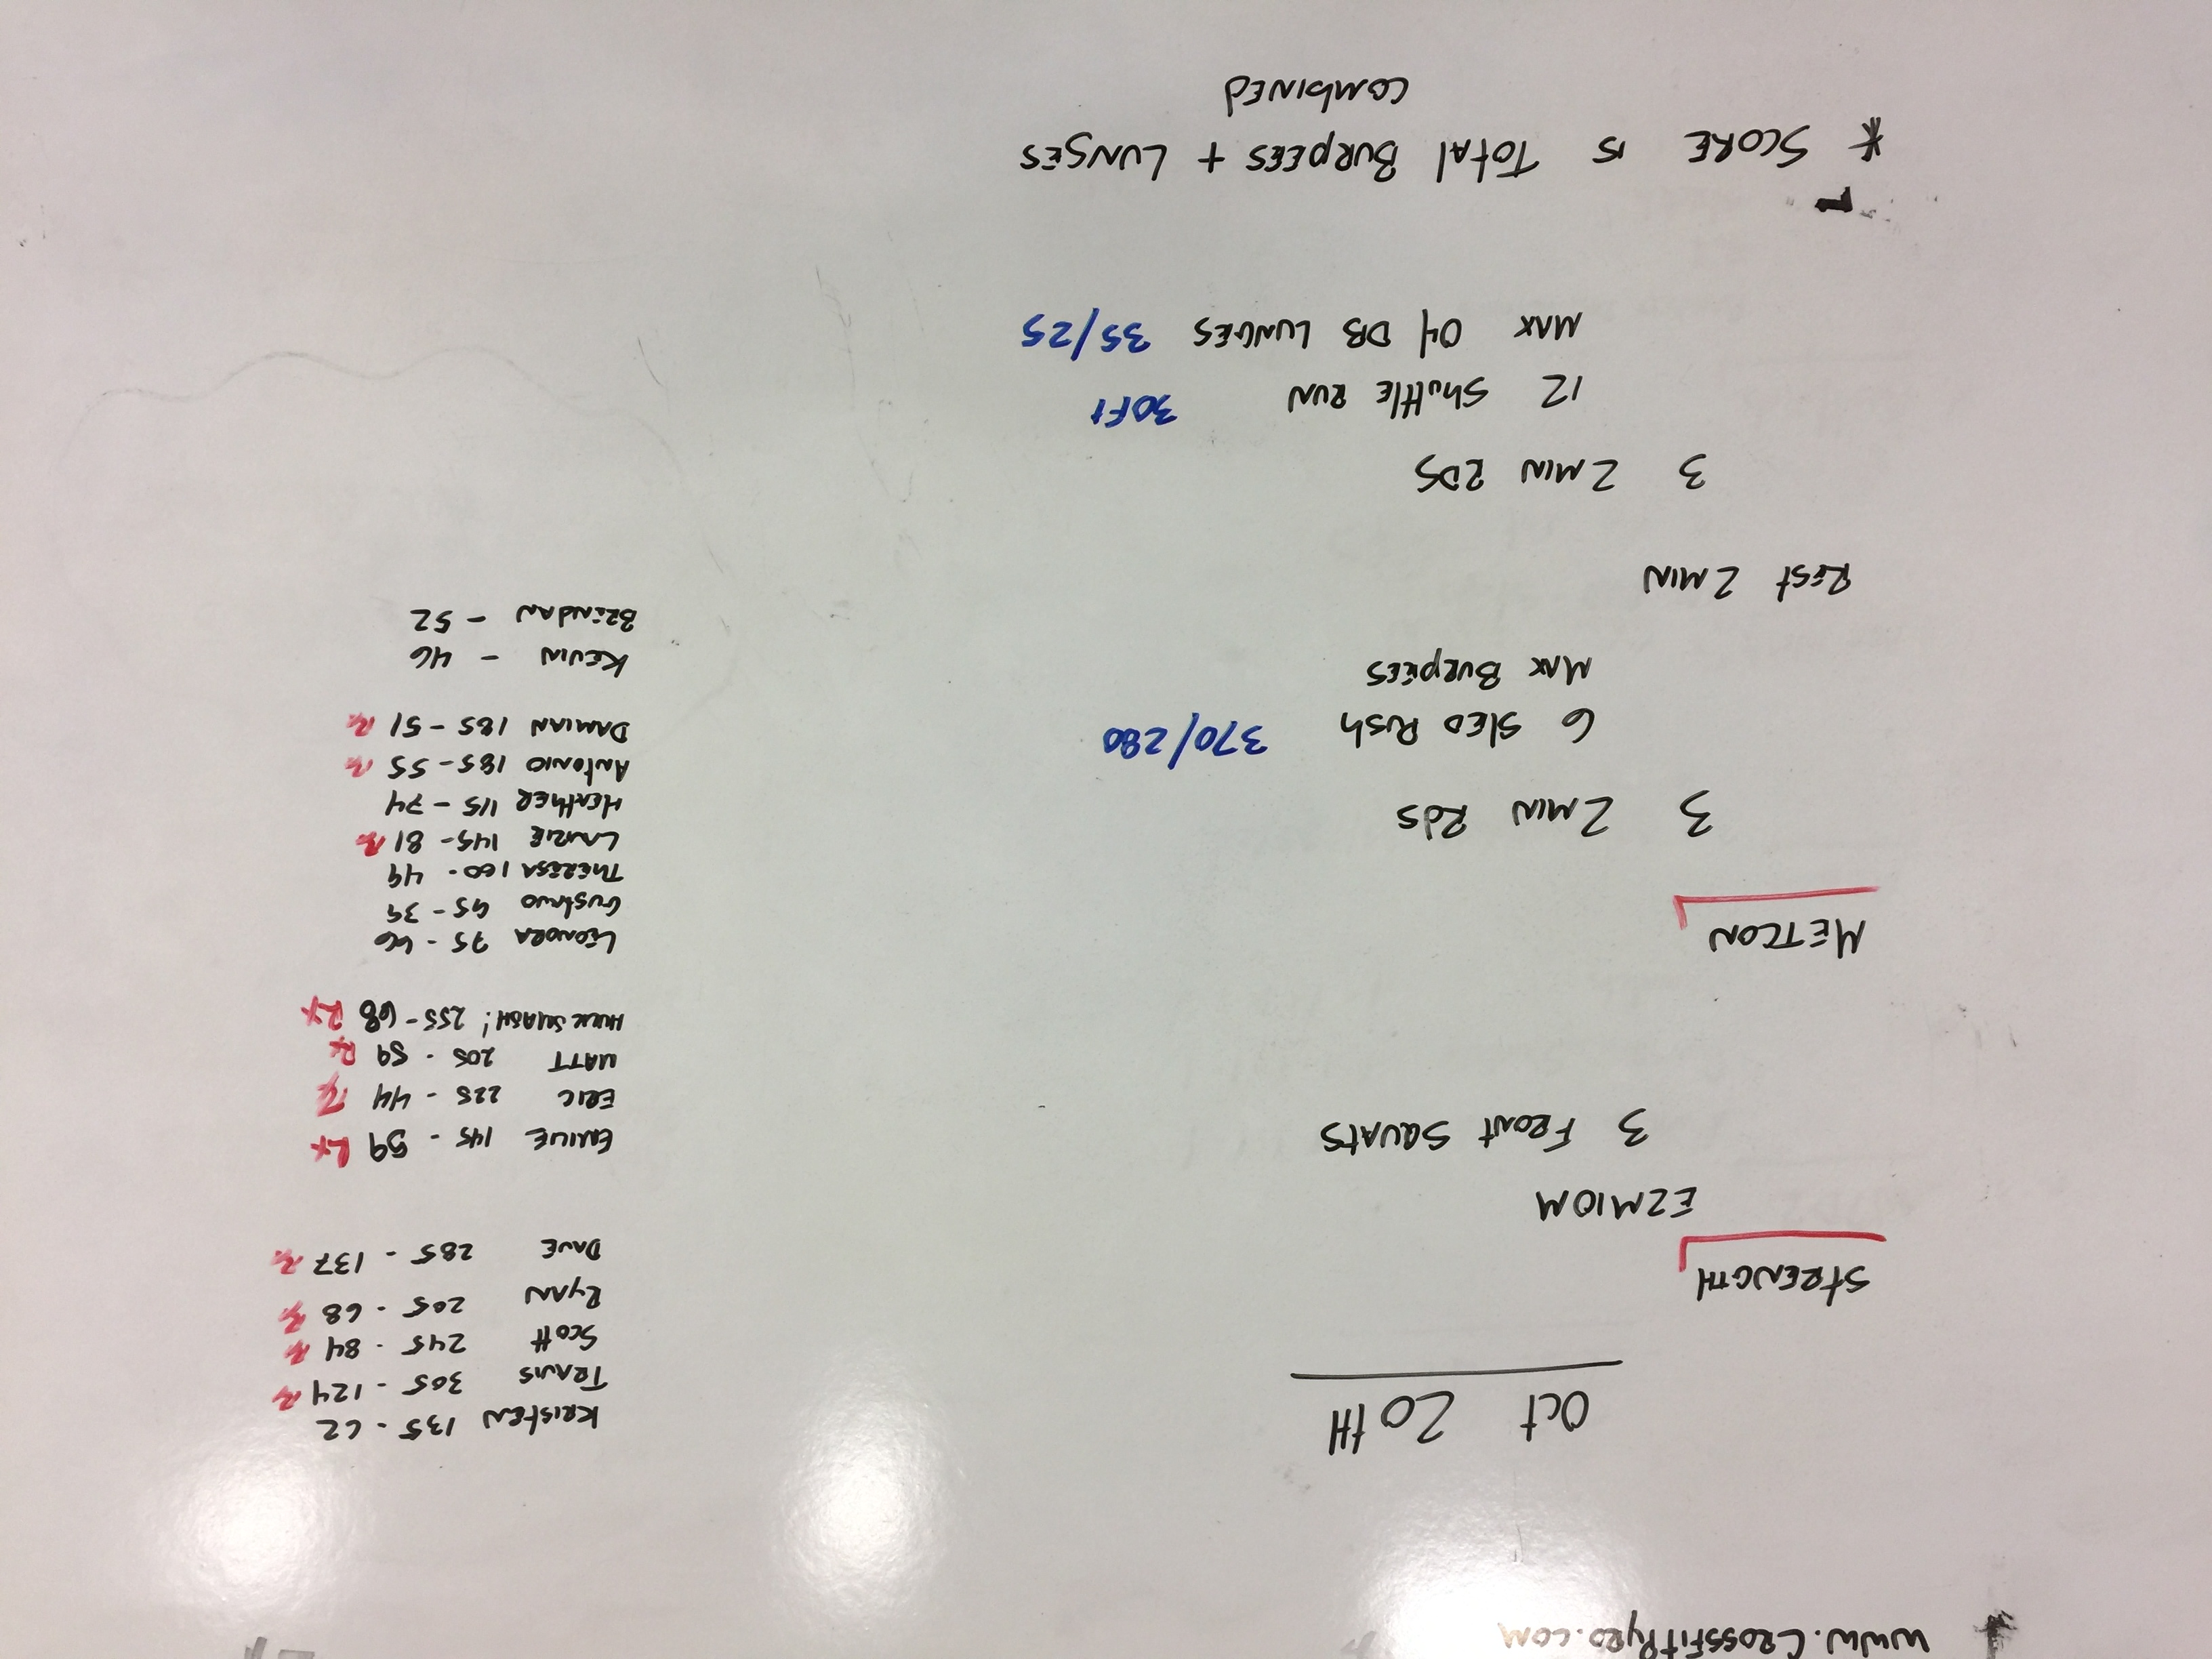 www.CrossFitPyro.com
Oct 20tH
StRENGTH
E2M10M
3 FRont SQUAtS
METCON
3 2 MIN Rds
6 SlED Push 370/280
MAX BURpEES
REst 2 MIN
3 2 MIN RDS
12 ShuttlE RUN 30Ft
MAX OH DB LUNGES 35/25
* SCORE is Total BURpEES + LUNGES
COMbINEd
KRIStEN 135 - 62
TRAVIS 305 - 124 Rx
Scott 245 - 84 Rx
RYAN 205 - 68 Rx
DAVE 285 - 137 Rx
EMILIE 145 - 59 Rx
ERIC 225 - 44 Rx
MATT 205 - 59 Rx
HULK SMASH! 255 - 68 Rx
LEONORA 75 - 66
GUStAVO 95 - 39
THERESA 100 - 49
LAURIE 145 - 81 Rx
HEAtHER 115 - 74
ANtONIO 185 - 55 Rx
DAMIAN 185 - 51 Rx
KEVIN - 46
BRENdAN - 52